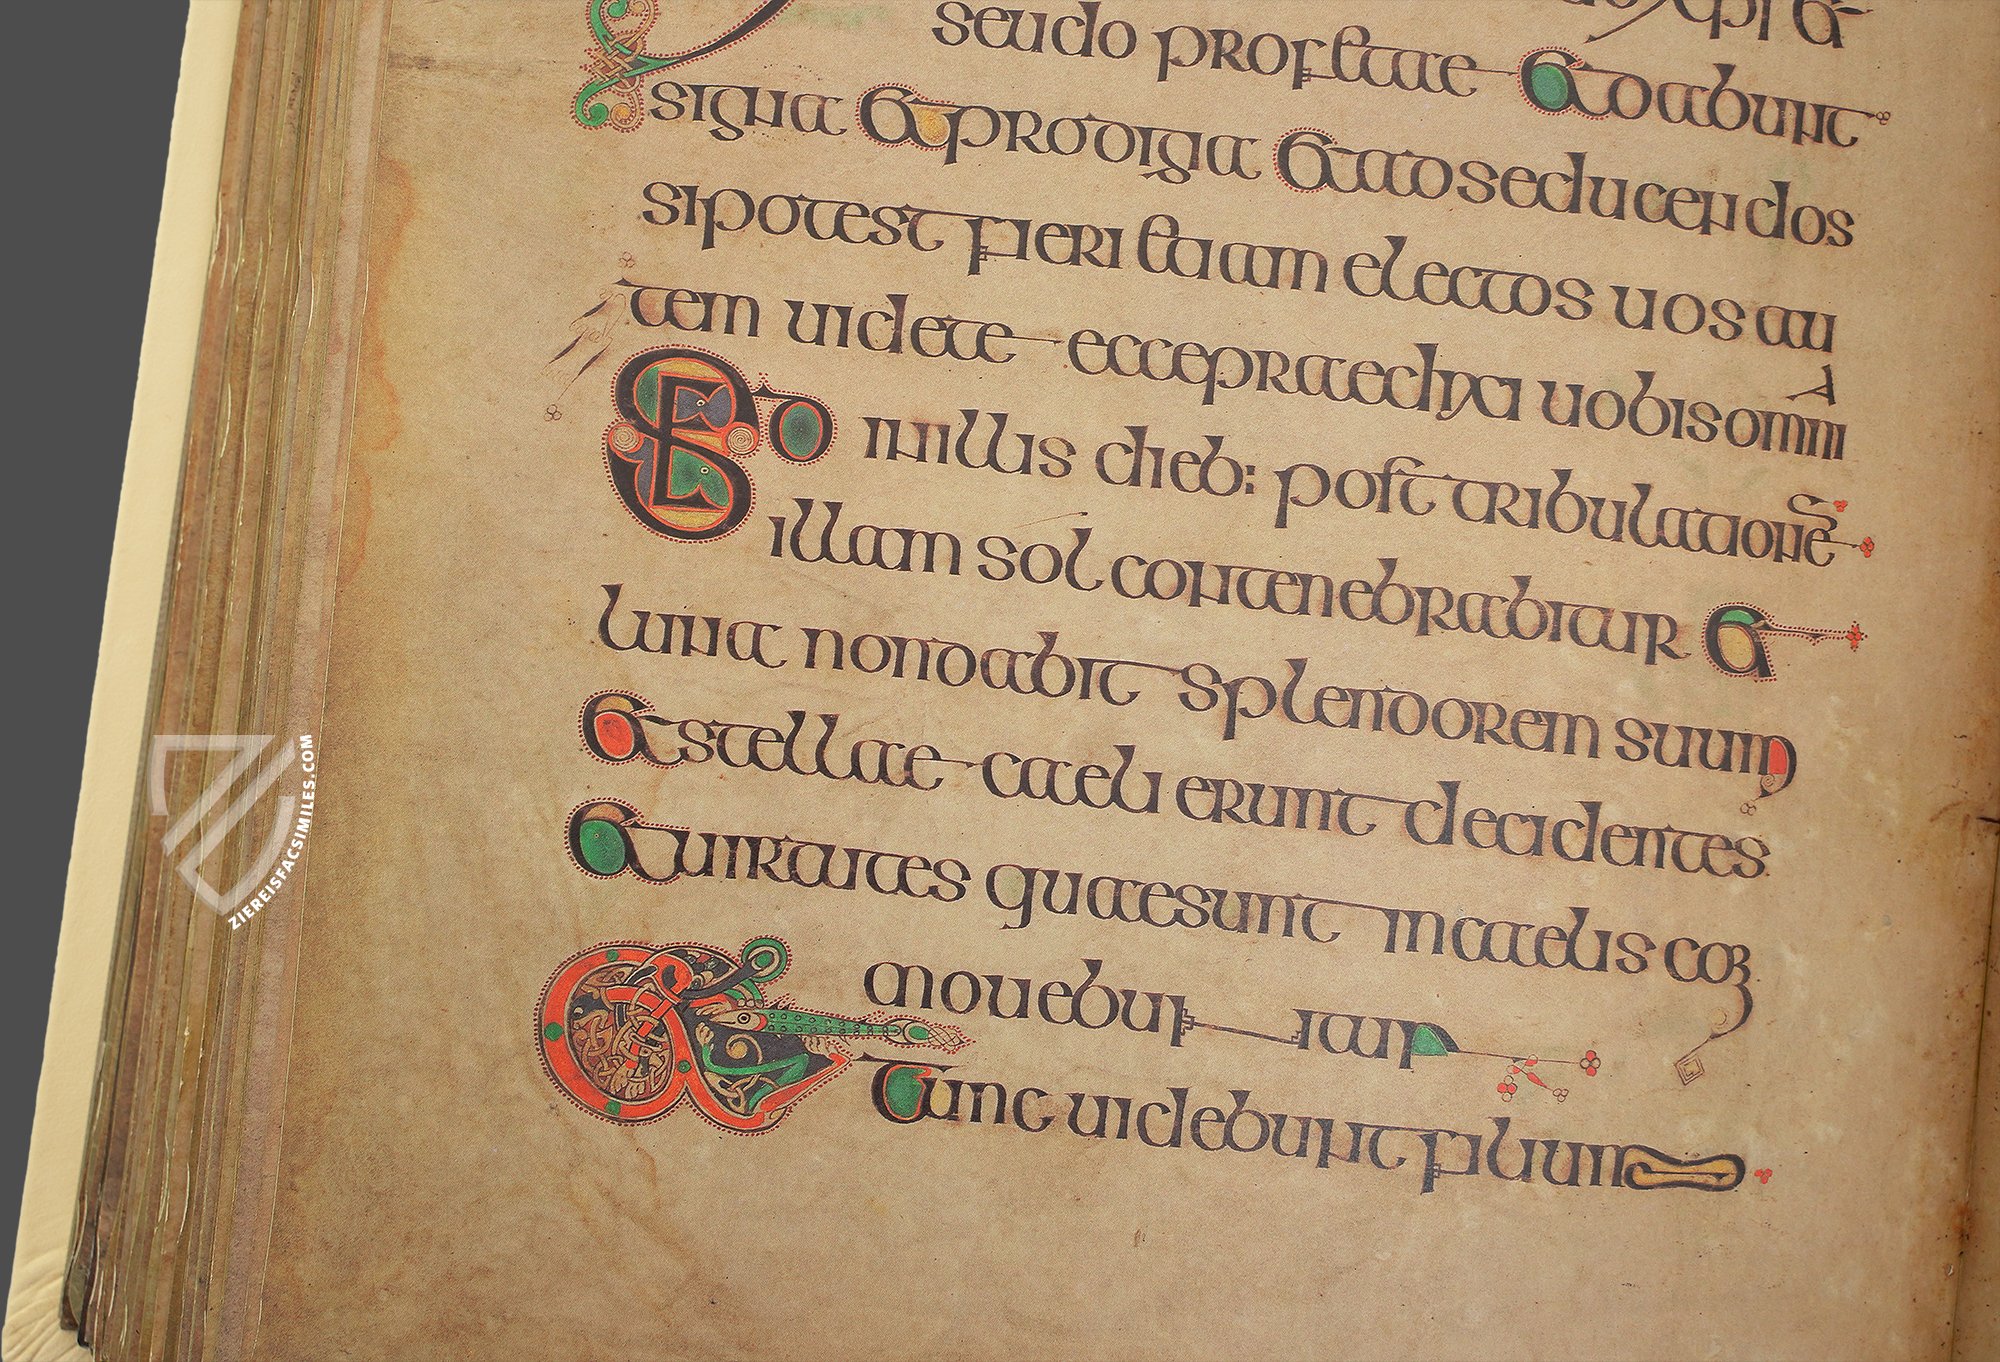 xpi &
seudo profetae & dabunt
signa & prodigia & ad seducendos
si potest fieri etiam electos uos au
tem uidete ecce praedixi uobis omnia
Sed in illis dieb: post tribulationē
illam sol contenebrabitur &
luna non dabit splendorem suum
& stellae caeli erunt decidentes
& uirtutes quae sunt in caelis com
mouebuntur
Tunc uidebunt filium
ZIEREISFACSIMILES.COM